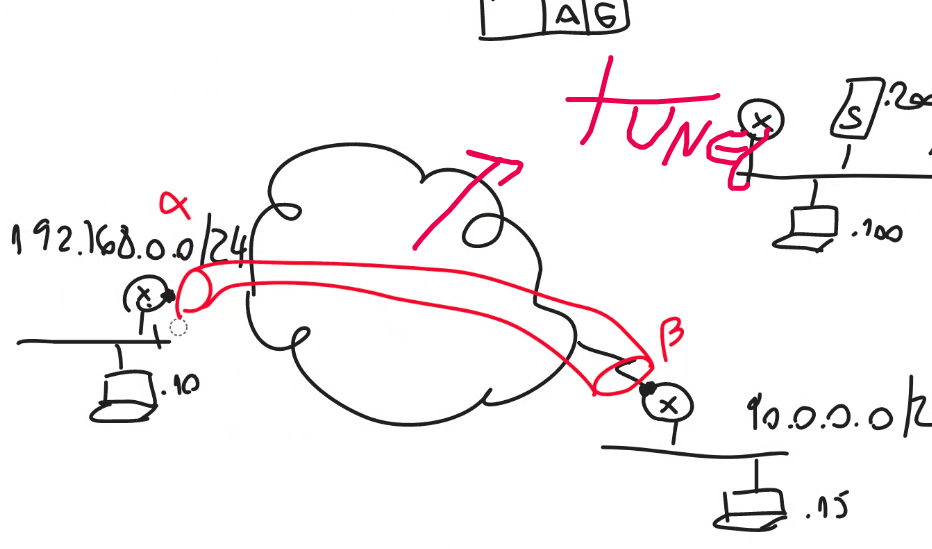 A G
TUNE
X
S
.200
.100
α
192.168.0.0/24
X
.10
β
X
10.0.0.0/2
.15